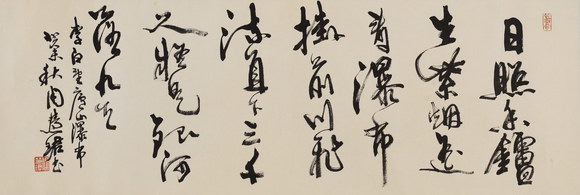 日照香鑪
生紫烟遥
看瀑布
掛前川飛
流直下三千
尺疑是银河
落九天
李白望庐山瀑布
癸未秋周慧珺书